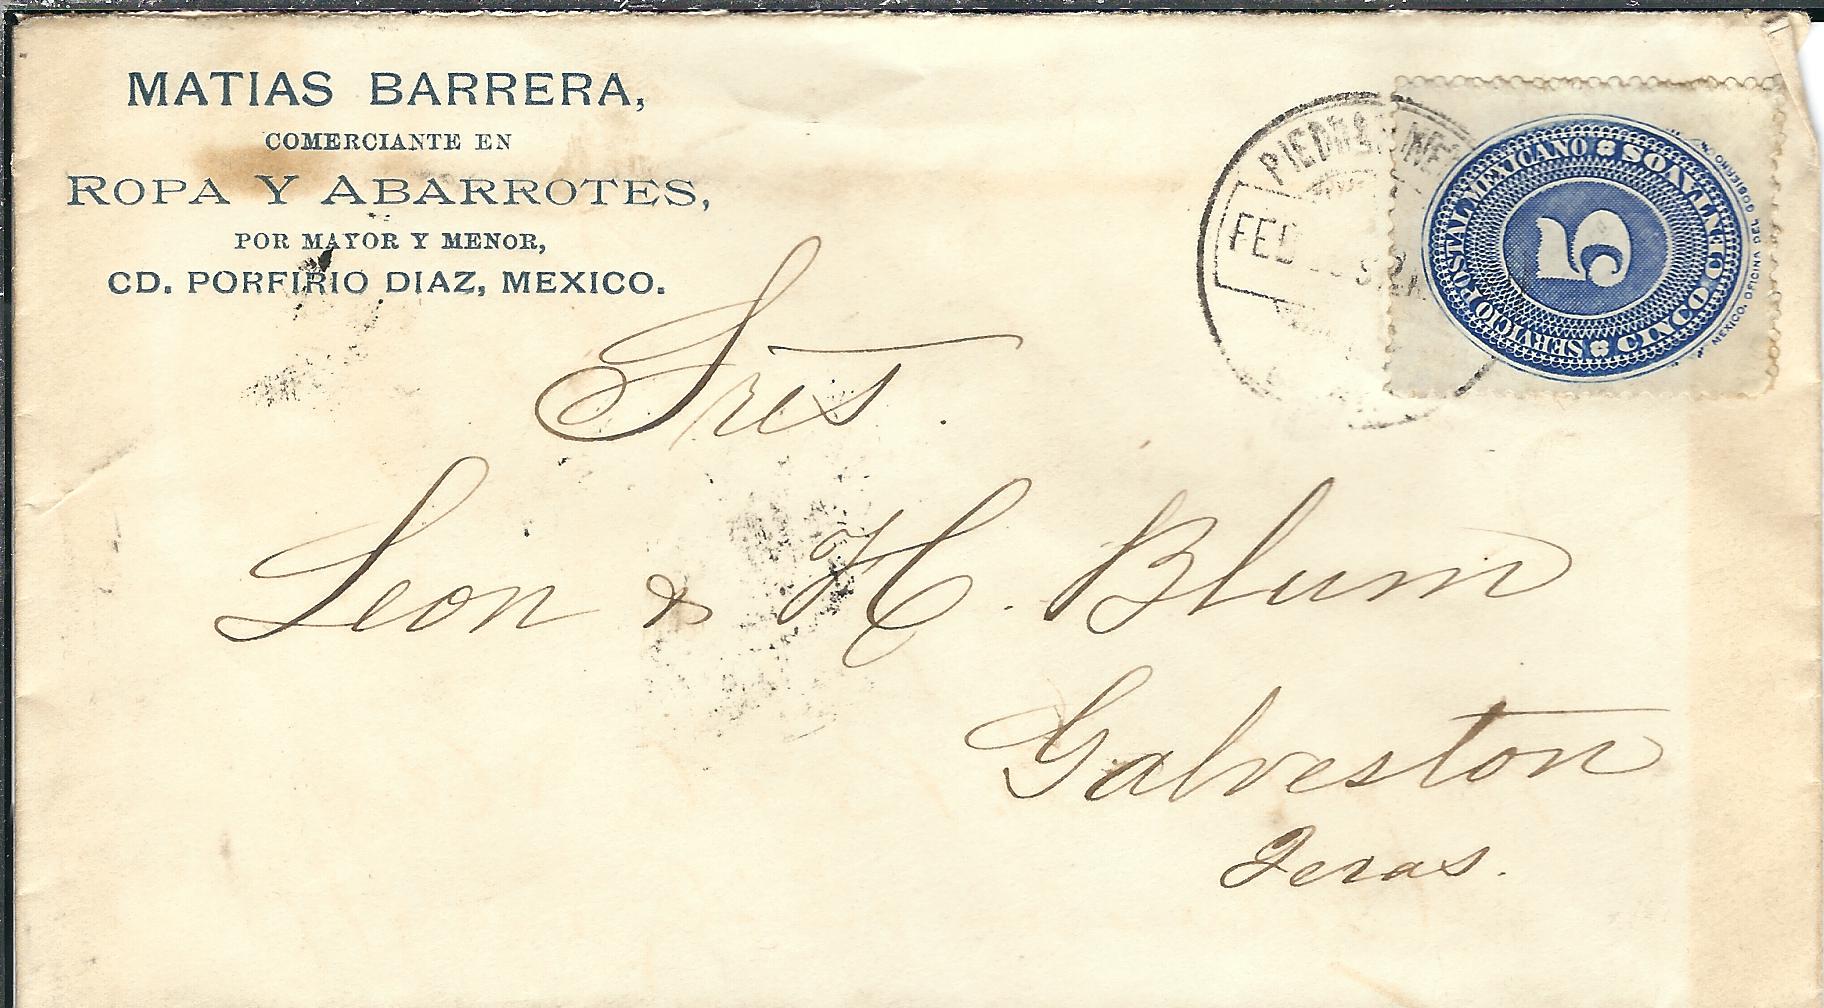 MATIAS BARRERA,
COMERCIANTE EN
ROPA Y ABARROTES,
POR MAYOR Y MENOR,
CD. PORFIRIO DIAZ, MEXICO.
SERVICIO POSTAL MEXICANO
CINCO CENTAVOS
5
MEXICO, OFICINA DEL GOBIERNO
Sres.
Leon & H. Blum
Galveston
Texas.